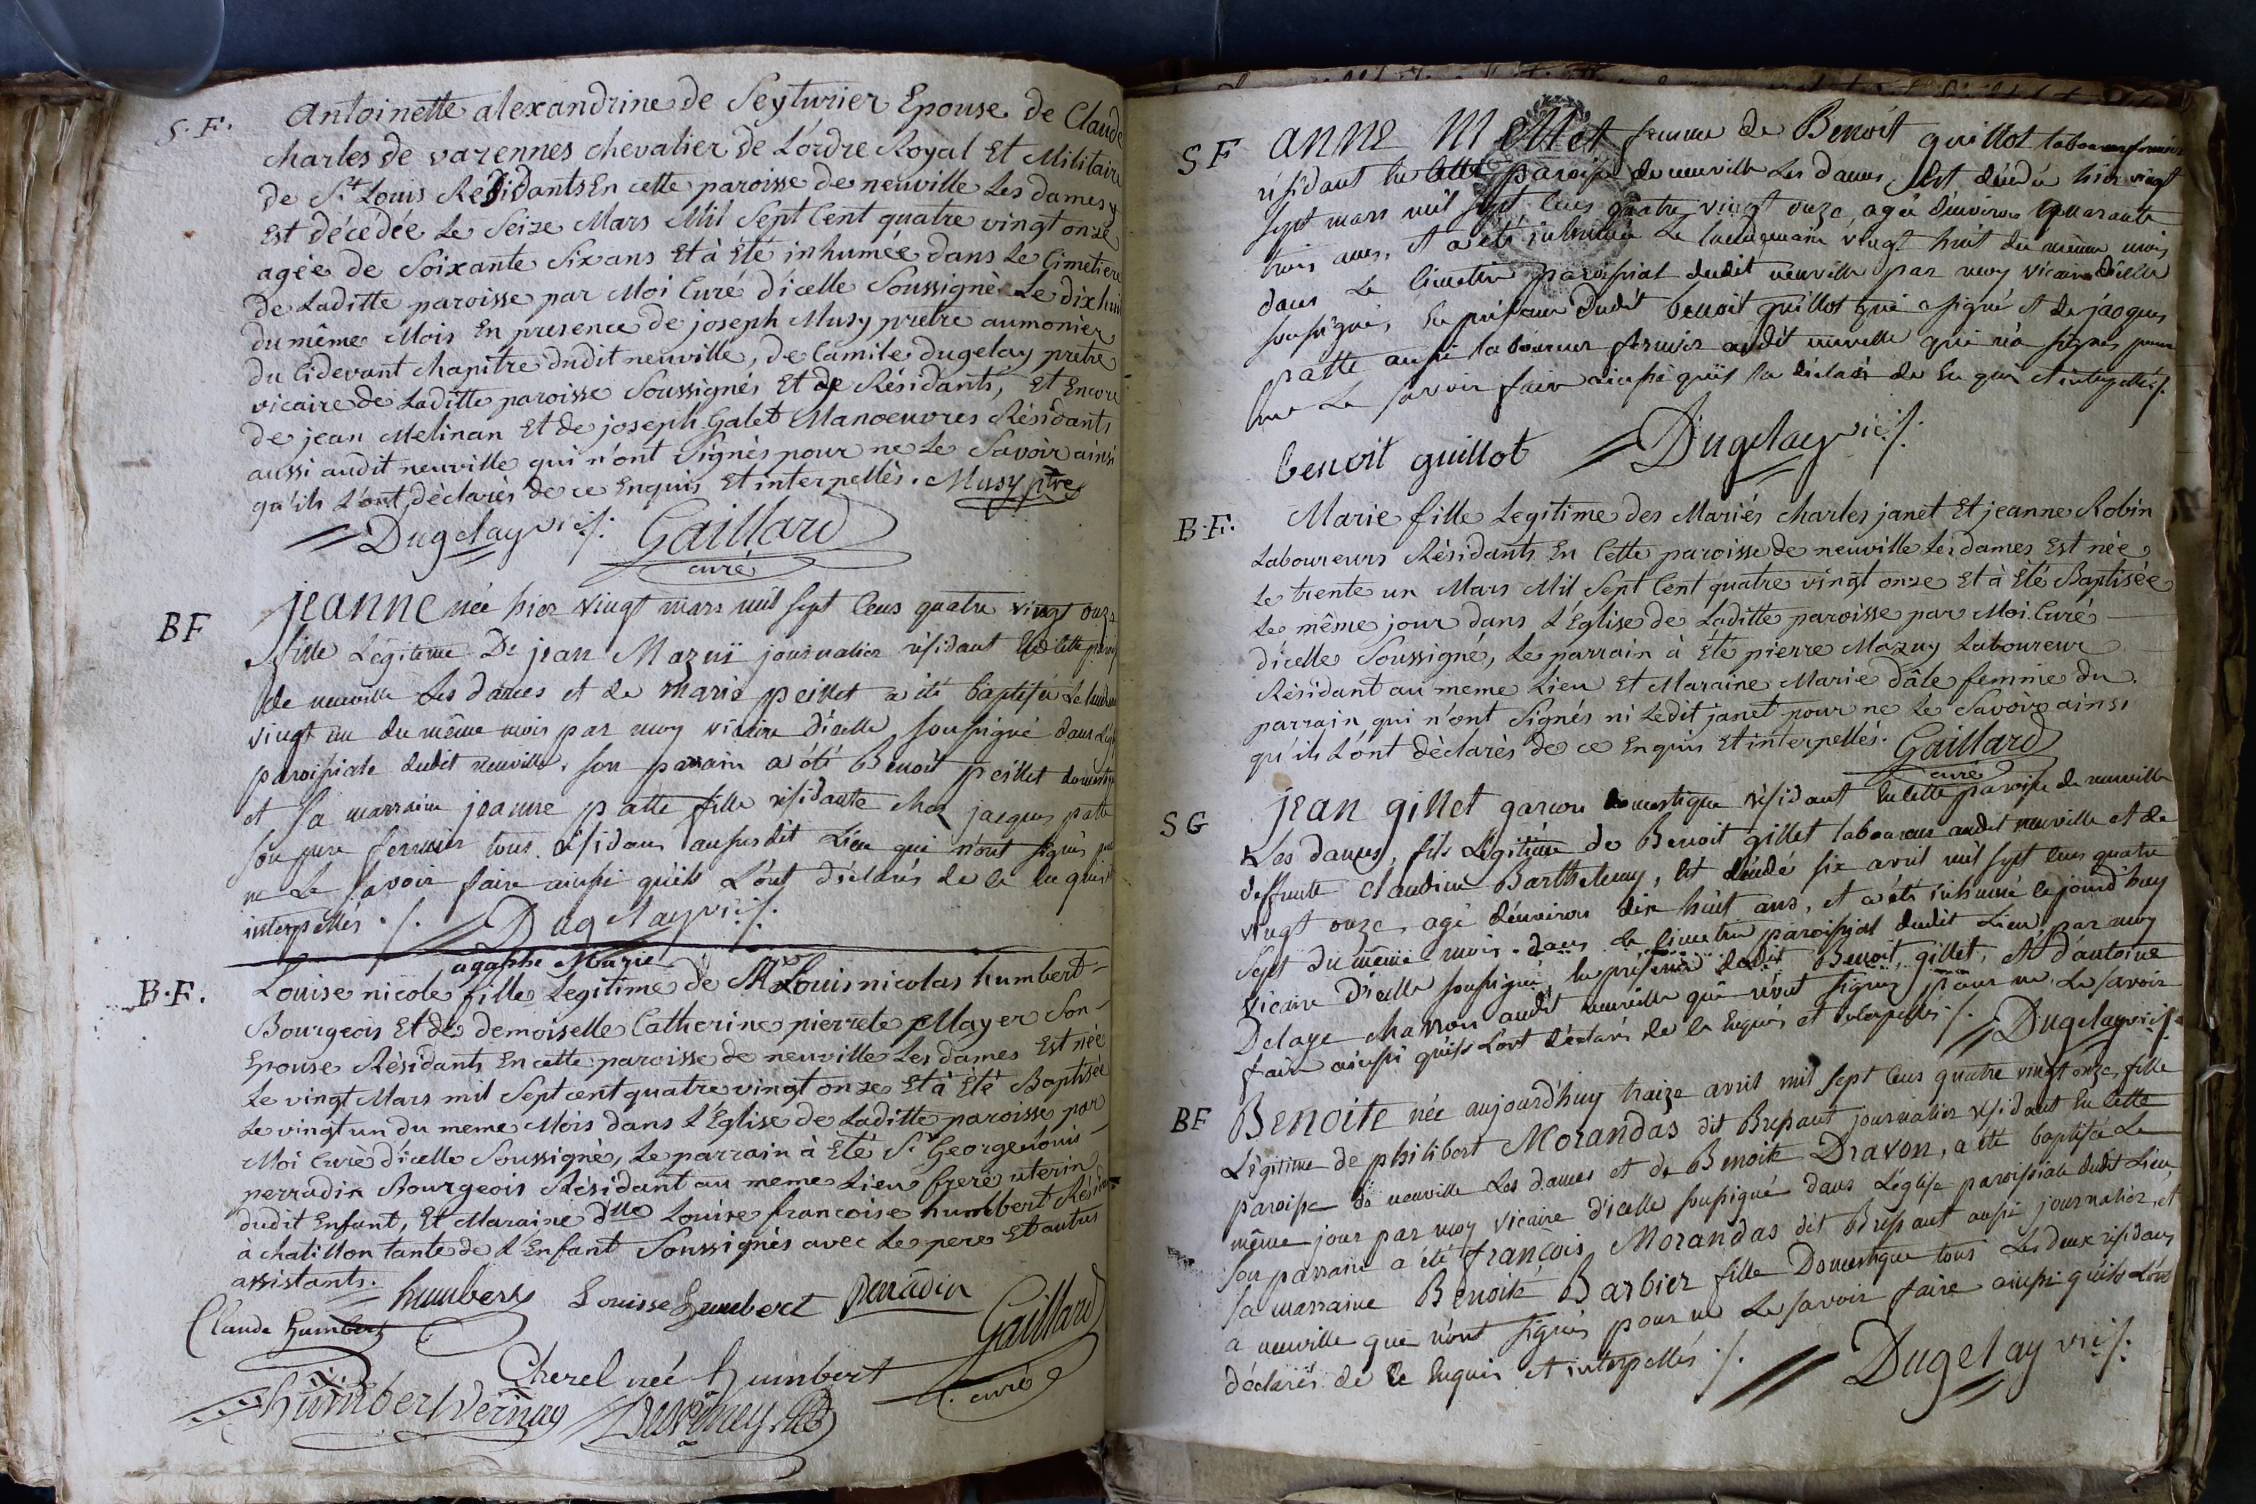 S.F. Antoinette alexandrine de Seyturier Epouse de Claude
charles de varennes chevalier de L'ordre Royal Et Militaire
de St Louis RésidantsEn cette paroisse de neuville Les dames y
Est décédée Le Seize Mars Mil Sept Cent quatre vingt onze
agée de Soixante Six ans Et à Eté inhumée dans Le Cimetiere
de Laditte paroisse par Moi Curé d'icelle Soussigné Le dix huit
du même Mois En presence de joseph Musy pretre aumonier
du Cidevant chapitre dudit neuville, de Camile Dugelay pretre
vicaire de Laditte paroisse Soussignés Et de Résidants, Et Encore
de jean Melinan Et de joseph Galet Manoeuvres Résidants
aussi audit neuville qui n'ont Signés pour ne Le Savoir ainsi
qu'ils L'ont dèclarés de ce Enquis Et interpellés. Musy ptre
Dugelay vic/. Gaillard
curé
BF Jeanne née hier vingt mars mil sept Cens quatre vingt onze
fille Légitime De jean Mazuÿ journalier résidant En cette paroisse
de neuville Les dames et de Marie peillet a été baptisée Le lendemain
vingt un du même mois par moy vicaire d'icelle soussigné dans L'église
paroissiale dudit neuville, son parrain a été Benoit peillet domestique
et sa marraine jeanne patte fille résidante chez jacques patte
son pere fermier tous résidans aususdit Lieu qui n'ont signés pour
ne Le savoir faire ainsi qu'ils L'ont déclarés de ce Enquis et
interpellés ./. Dugelay vic/.
agathe Marie
B.F. Louise nicole fille Legitime de Mr Louis nicolas humbert
Bourgeois Et de demoiselle Catherine pierrete Mayer Son
Epouse Résidants En cette paroisse de neuville Les dames Est née
Le vingt Mars mil Sept cent quatre vingt onze Et à Eté Baptisée
Le vingt un du meme Mois dans L'Eglise de Laditte paroisse par
Moi Curé d'icelle Soussigné, Le parrain à Eté Sr George Louis
perradin Bourgeois Résidant au meme Lieu frere uterin
dudit Enfant, Et Maraine dlle Louise francoise humbert Résidante
à chatillon tante de L'Enfant Soussignés avec Le pere Et autres
assistants. humbert Louisse humbert perradin
Claude humbert Gaillard
Cherel née humbert curé
humbert Vernay
SF Anne Mellet femme de Benoit guillot laboureur fermier
résidant En Cette paroisse de neuville Les dames, Est décédée hier vingt
sept mars mil sept Cens quatre vingt onze, agée d'environ quarante
trois ans, et a été inhumée Le lendemain vingt huit du même mois
dans Le Cimetière paroissial dudit neuville par moy vicaire d'icelle
soussigné, En présence dudit benoit guillot qui a signé et de jacques
patte aussi laboureur fermier audit neuville qui n'a signé pour
ne Le savoir faire ainsi qu'il l'a déclaré de En quis et interpellé/.
benoit guillot Dugelay vic/.
B.F. Marie fille Legitime des Mariés charles janet Et jeanne Robin
Laboureurs Résidants En Cette paroisse de neuville Les dames Est née
Le trente un Mars Mil Sept Cent quatre vingt onze Et à Eté Baptisée
Le même jour dans L'Eglise de Laditte paroisse par Moi Curé
d'icelle Soussigné, Le parrain à Eté pierre Mazuy Laboureur
Résidant au meme Lieu Et Maraine Marie dâle femme du
parrain qui n'ont Signés ni Ledit janet pour ne Le Savoir ainsi
qu'ils L'ont dèclarés de ce Enquis Et interpellés. Gaillard
curé
SG Jean gillet garcon domestique résidant En Cette paroisse de neuville
Les dames, fils Légitime de Benoit gillet laboureur audit neuville et de
deffunte Claudine Barthelemy, Est décédé six avril mil sept Cens quatre
vingt onze, agé d'environ dix huit ans, et a été inhumé cejourd'huy
sept du même mois dans Le Cimetière paroissial dudit Lieu par moy
vicaire d'icelle soussigné, En présence dudit Benoit gillet, Et d'antoine
Delaye charron audit neuville qui n'ont signés pour ne Le savoir
faire ainsi qu'ils L'ont déclarés de Ce Enquis et interpellés/. Dugelay vic/.
BF Benoite née aujourd'huy traize avril mil sept Cens quatre vingt onze, fille
Légitime de philibert Morandas dit Bressant journalier résidant En Cette
paroisse de neuville Les dames et de Benoite Dravon, a été baptisée Le
même jour par moy vicaire d'icelle soussigné dans L'église paroissiale dudit Lieu,
son parrain a été françois Morandas dit Bressant aussi journalier, et
sa marraine Benoite Barbier fille Domestique tous Les deux résidans
a neuville qui n'ont signés pour ne Le savoir faire ainsi qu'ils L'ont
déclarés de Ce Enquis et interpellés ./. Dugelay vic/.